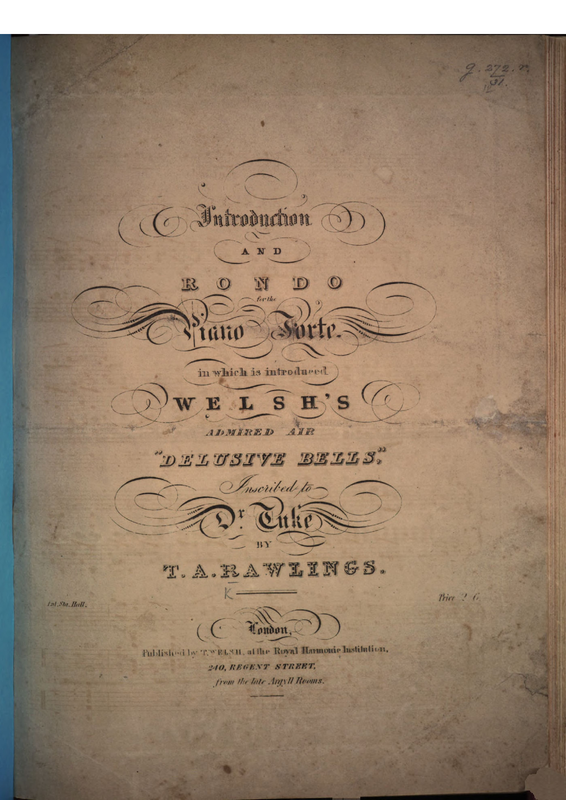 g. 272. v.
31.
Introduction
AND
RONDO
for the
Piano Forte.
in which is introduced
WELSH'S
ADMIRED AIR
"DELUSIVE BELLS,"
Inscribed to
Dr. Tuke
BY
T. A. RAWLINGS.
K
Ent. Sta. Hall.
Price 2 6
London,
Published by T. WELSH, at the Royal Harmonic Institution,
240, REGENT STREET,
from the late Argyll Rooms.